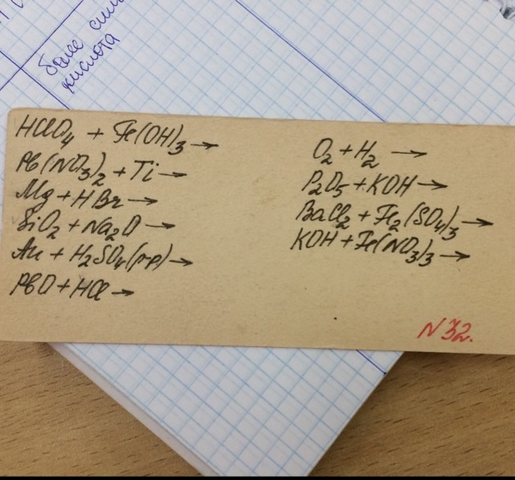 более силь
кислота
HClO₄ + Fe(OH)₃ →
Pb(NO₃)₂ + Ti →
Mg + HBr →
SiO₂ + Na₂O →
Au + H₂SO₄(р-р) →
PbO + HCl →
O₂ + H₂ →
P₂O₅ + KOH →
BaCl₂ + Fe₂(SO₄)₃ →
KOH + Fe(NO₃)₃ →
N32.